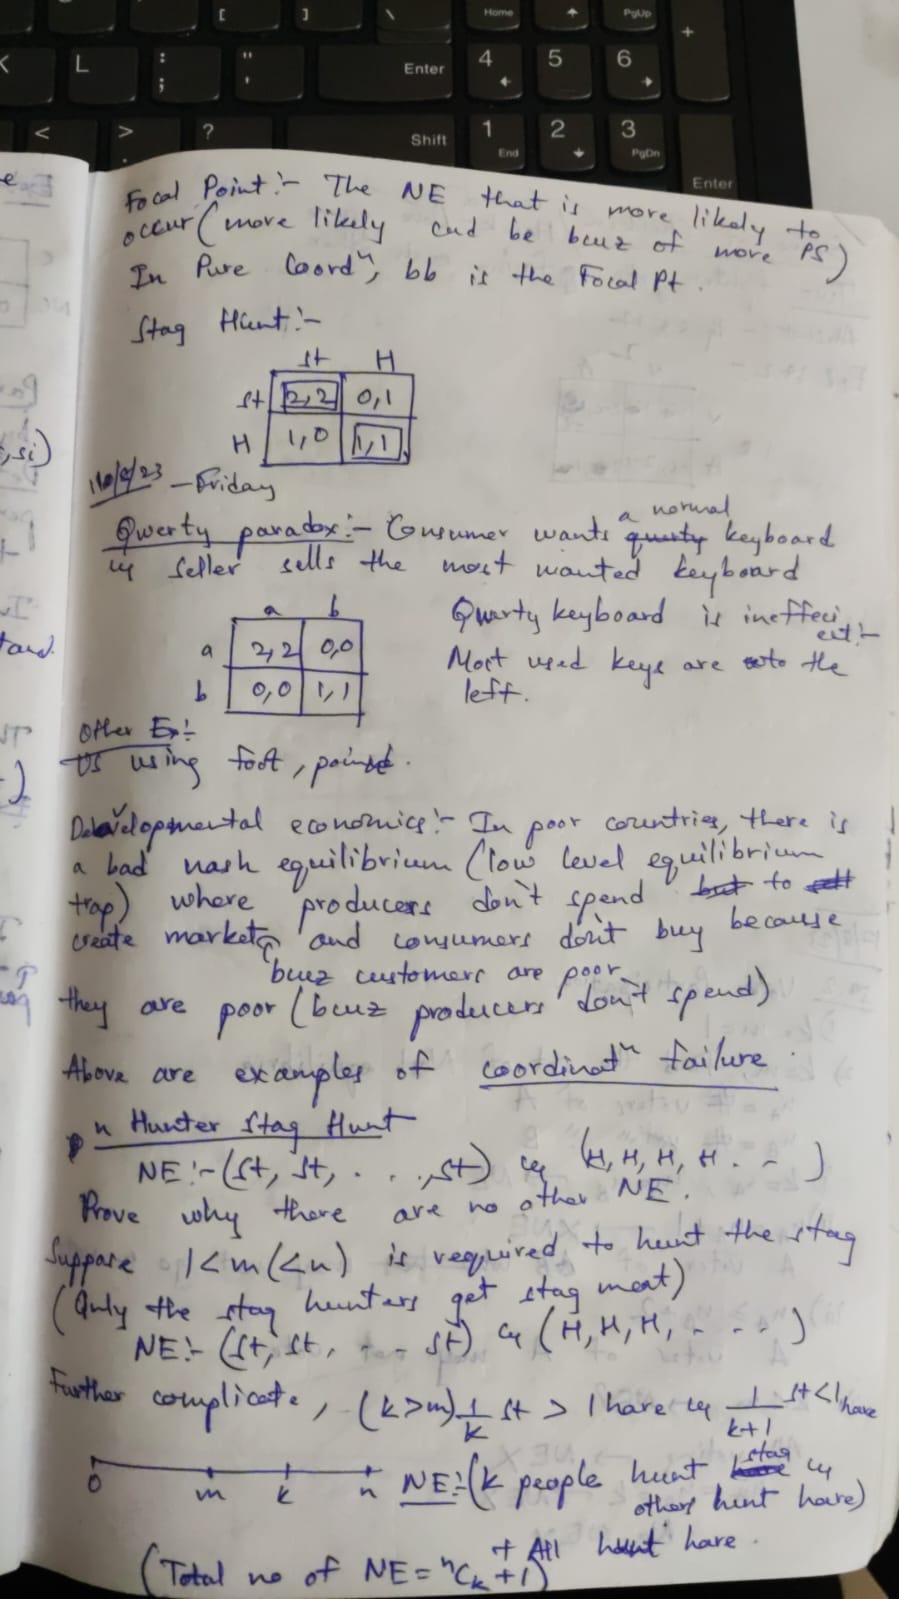 [
]
\
Home
PgUp
+
K
L
:
;
"
'
Enter
4
5
6
<
>
?
Shift
1
End
2
3
PgDn
Enter
Focal Point:- The NE that is more likely to
occur (more likely cud be bcuz of more PS)
In Pure Coordⁿ, bb is the Focal Pt.
Stag Hunt:-
St H
St 2,2 0,1
H 1,0 1,1
- Friday
a normal
Qwerty paradox:- Consumer wants keyboard
Seller sells the most wanted keyboard
a b
a 2,2 0,0
b 0,0 1,1
Qwerty keyboard is ineffeci
ent:-
Most used keys are to the
left.
Other Ex:-
US using foot, pound.
Developmental economics:- In poor countries, there is
a bad nash equilibrium (low level equilibrium
trap) where producers don't spend to
create market and consumers don't buy because
bcuz customers are poor
they are poor (bcuz producers don't spend)
Above are examples of coordinatⁿ failure.
n Hunter Stag Hunt
NE:- (St, St, . . ., St) & (H, H, H, H . . )
Prove why there are no other NE.
Suppose 1<m(<n) is required to hunt the stag
(Only the stag hunters get stag meat)
NE:- (St, St, - - St) & (H, H, H, - - - )
Further complicate, (k>m) 1/k St > 1 hare & 1/k+1 St < 1 hare
0 m k n
NE:- (k people hunt stag &
others hunt hare)
+ All hunt hare.
(Total no of NE = ⁿCₖ + 1)